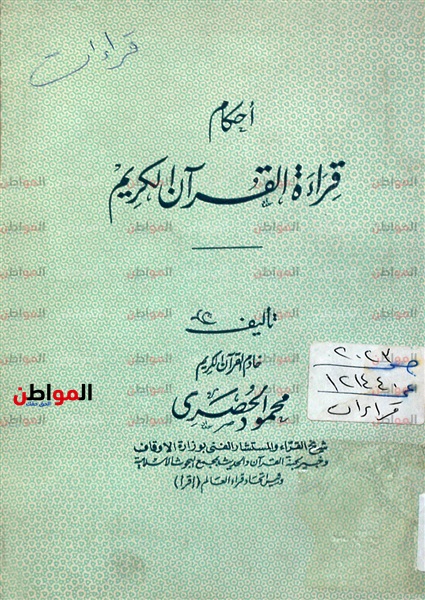 قراءات
أحكام
قراءة القرآن الكريم
تأليف
خادم القرآن الكريم
محمود الحصري
شيخ القراء والمستشار الفني بوزارة الأوقاف
وخبير لجنة القرآن والحديث بمجمع البحوث الإسلامية
ورئيس اتحاد قراء العالم (إقرأ)
٢٠٢٣
١٢١٤٤
قراءات
المواطن